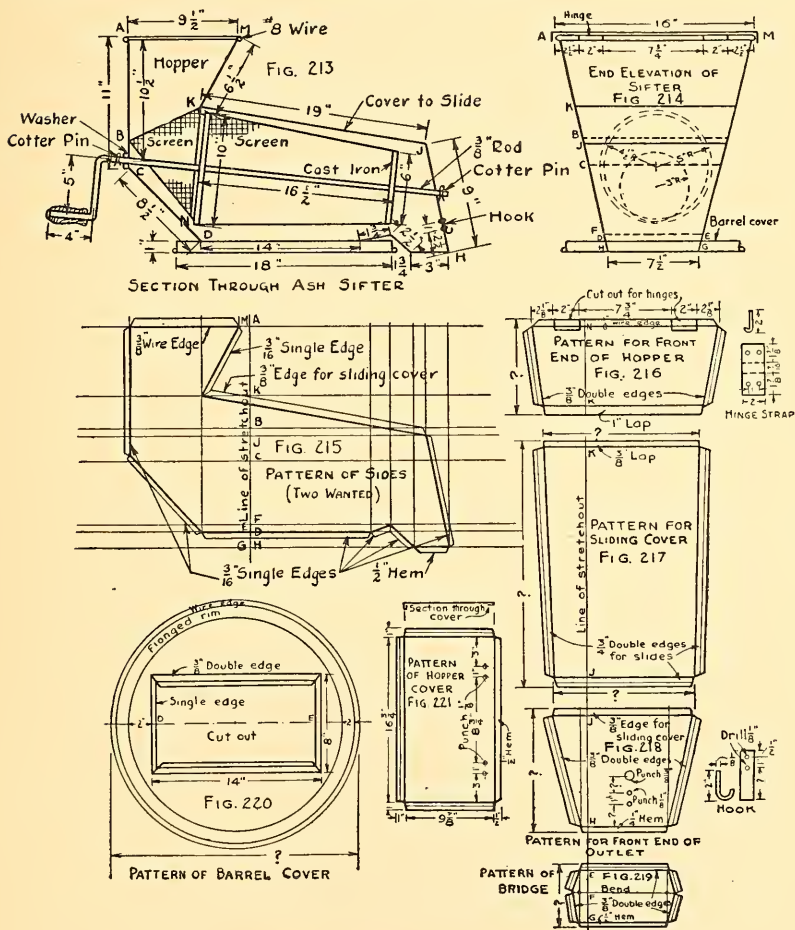 9 1/2"
A
M
#8 Wire
Hopper
11"
10 1/2"
6 1/2"
FIG. 213
K
19"
Cover to Slide
Washer
Cotter Pin
B
Screen
Screen
10"
J
3/8" Rod
Cotter Pin
C
Cast Iron
5"
16 1/2"
6"
9"
8 1/2"
4"
N
D
Hook
1"
14"
1 3/4"
2 1/2"
18"
1 3/4"
3"
H
SECTION THROUGH ASH SIFTER
16"
Hinge
A
M
2 1/2"
2"
7 3/4"
2"
2 1/2"
END ELEVATION OF
SIFTER
FIG 214
K
B
J
C
5"R
3"R
F
D
H
E
G
Barrel cover
7 1/2"
M
A
3/8" Wire Edge
3/16" Single Edge
3/8" Edge for sliding cover
K
B
J
C
Line of stretchout
FIG. 215
PATTERN OF SIDES
(TWO WANTED)
F
E
D
G
H
3/16" Single Edges
1/2" Hem
Cut out for hinges
2 1/8"
2"
7 3/4"
2"
2 1/8"
N
wire edge
PATTERN FOR FRONT
END OF HOPPER
FIG. 216
?
3/8" Double edges
K
1" Lap
2"
1 1/8"
1 1/8"
2"
HINGE STRAP
?
K
3/8" Lap
PATTERN FOR
SLIDING COVER
FIG. 217
Line of stretchout
?
3/4" Double edges
for slides
J
?
Wire edge
Flanged rim
3/8" Double edge
Single edge
2"
D
E
2"
Cut out
8"
14"
FIG. 220
?
PATTERN OF BARREL COVER
Section through
cover
1"
PATTERN
OF HOPPER
COVER
FIG. 221
16 3/4"
3"
1"
Punch 1/8"
8 3/4"
1"
3"
1/2" Hem
1"
9 7/8"
1/2"
J
3/8" Edge for
sliding cover
FIG. 218
3/8" Double edges
Punch
Punch 1/8"
?
H
1/4" Hem
PATTERN FOR FRONT END OF
OUTLET
Drill 1/8"
2"
1"
HOOK
PATTERN OF
BRIDGE
E
FIG. 219
Bend
F
3/8" Double edge
G
1/2" Hem
?